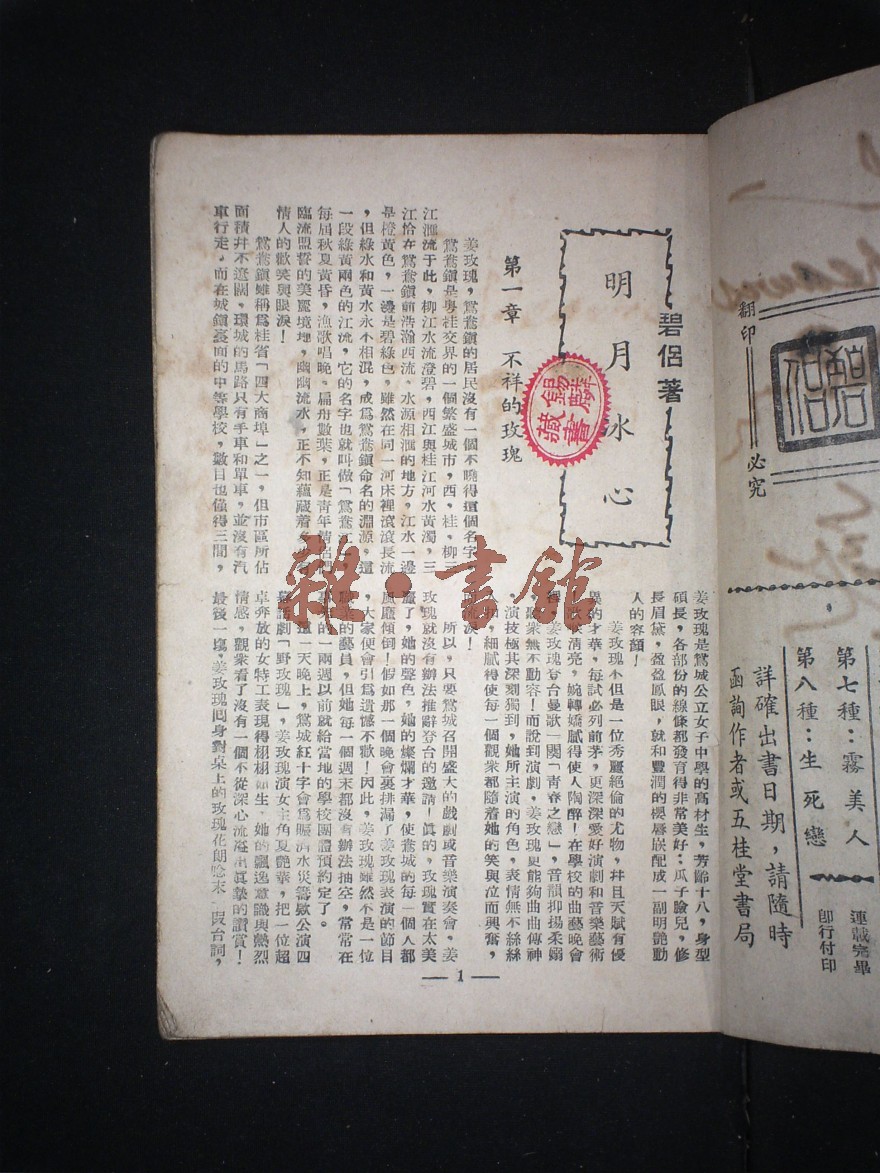 翻印
必究
碧侶
第七種：霧美人
第八種：生死戀
連載完畢
即行付印
詳確出書日期，請隨時
函詢作者或五桂堂書局
碧侶著
明月冰心
錫麟
藏書
第一章　不祥的玫瑰
姜玫瑰，鴛鴦鎮的居民沒有一個不曉得這個名字，
鴛鴦鎮是粵桂交界的一個繁盛城市，西、桂、柳三
江滙流于此，柳江水流澄碧，西江與桂江河水黃濁，三
江恰在鴛鴦鎮前浩瀚西流、水源相滙的地方，江水一邊
是橙黃色，一邊是碧綠色，雖然在同一河床裡滾滾長流
，但綠水和黃水永不相混，成爲鴛鴦鎮命名的淵源，這
一段綠黃兩色的江流，它的名字也就叫做「鴛鴦江」，
每屆秋夏黃昏，漁歌唱晚，扁舟數葉，正是青年情侶們
臨流盟誓的美麗境地，幽幽流水，正不知蘊藏着
情人的歡笑與眼淚！
鴛鴦鎮雖稱爲桂省「四大商埠」之一，但市區所佔
面積并不遼闊，環城的馬路只有手車和單車，並沒有汽
車行走，而在城鎮裏面的中等學校，數目也僅得三間，
姜玫瑰是鴛城公立女子中學的高材生，芳齡十八，身型
碩長，各部份的線條都發育得非常美好：瓜子臉兒，修
長眉黛，盈盈鳳眼，就和豐潤的櫻唇嵌配成一副明艷動
人的容顏！
姜玫瑰不但是一位秀麗絕倫的尤物，幷且天賦有優
異的才華，每試必列前茅，更深深愛好演劇和音樂藝術
，歌喉淸亮，婉轉嬌膩得使人陶醉！在學校的曲藝晚會
裡，姜玫瑰登台曼歌一闋「靑春之戀」，音韻抑揚柔嫋
，聽衆無不動容！而說到演劇，姜玫瑰更能夠曲曲傳神
、演技極其深刻獨到，她所主演的角色，表情無不絲絲
，細膩得使每一個觀衆都隨着她的笑與泣而興奮，
淚！
所以，只要鴛城召開盛大的戲劇或音樂演奏會，姜
玫瑰就沒有辦法推辭登台的邀請！眞的，玫瑰實在太美
麗了，她的聲色，她的燦爛才華，使鴛城的每一個人都
風靡傾倒！假如那一個晚會裏排漏了姜玫瑰表演的節目
，大家便會引爲遺憾不歡！因此，姜玫瑰雖然不是一位
職業的藝員，但她每一個週末都沒有辦法抽空，常常在
的一兩週以前就給當地的學校團體預約定了。
這一天晚上，鴛城紅十字會爲賑濟水災籌欵公演四
幕話劇「野玫瑰」，姜玫瑰演女主角夏艷華，把一位超
卓奔放的女特工表現得栩栩如生，她的飄逸意識與熱烈
情感，觀衆看了沒有一個不從深心流溢出眞摯的讚賞！
最後一塲，姜玫瑰囘身對桌上的玫瑰花朗唸末一段台詞，
—1—
雜·書館